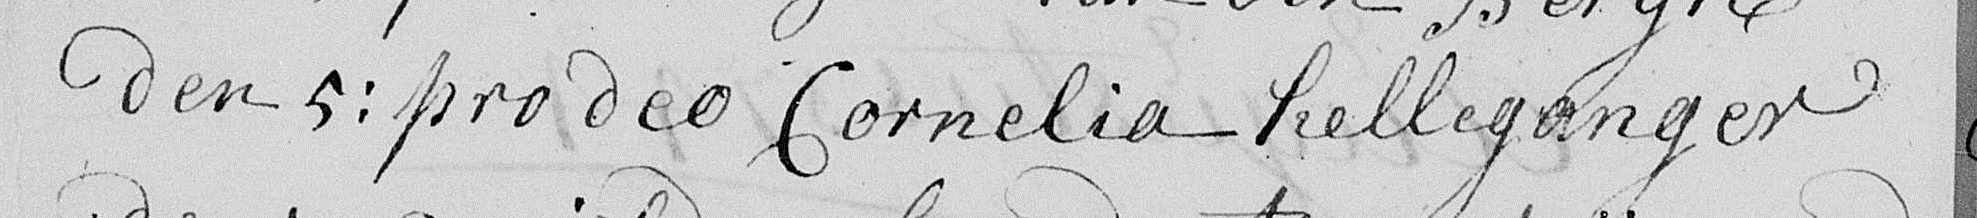 van den Berghe
den 5: pro deo Cornelia helleganger